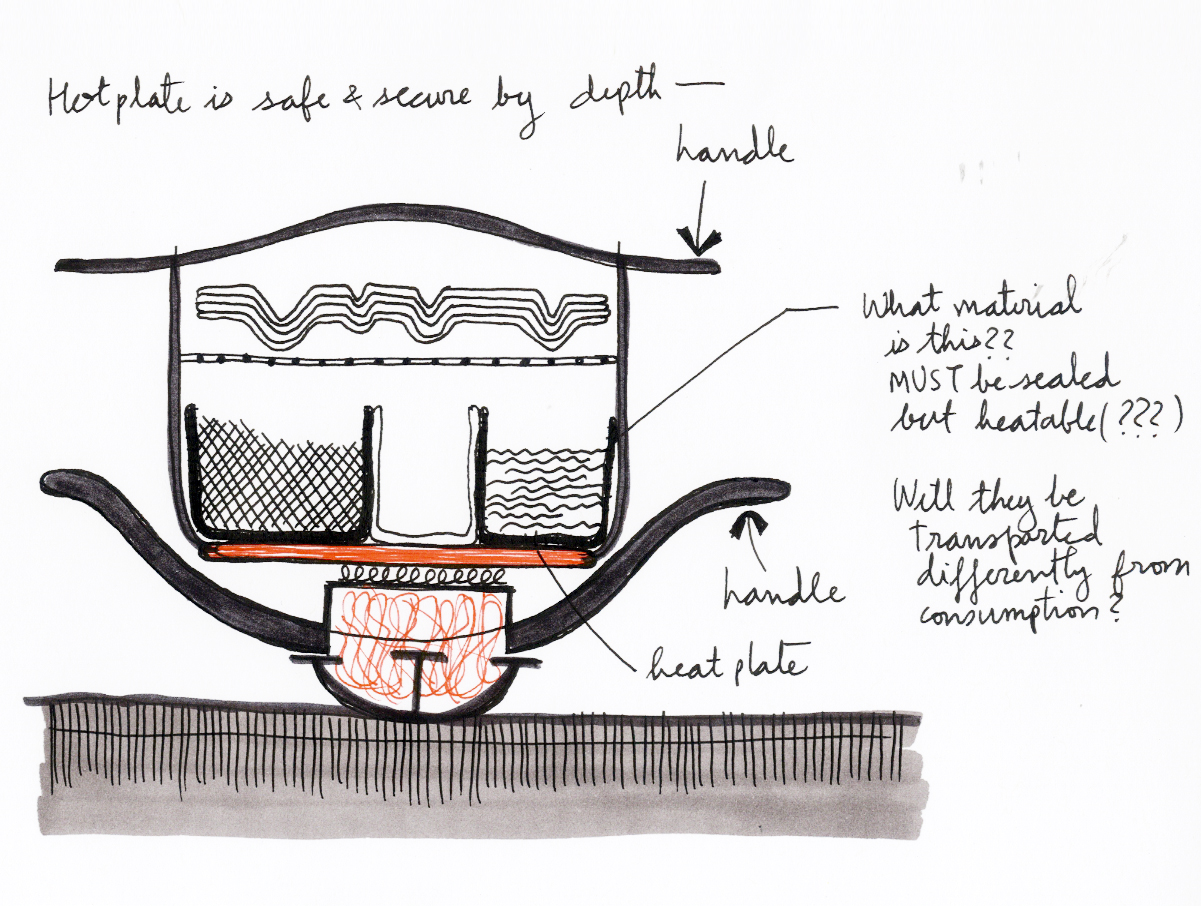 Hotplate is safe & secure by depth —
handle
What material
is this??
MUST be sealed
but heatable(???)
Will they be
transported
differently from
consumption?
handle
heat plate